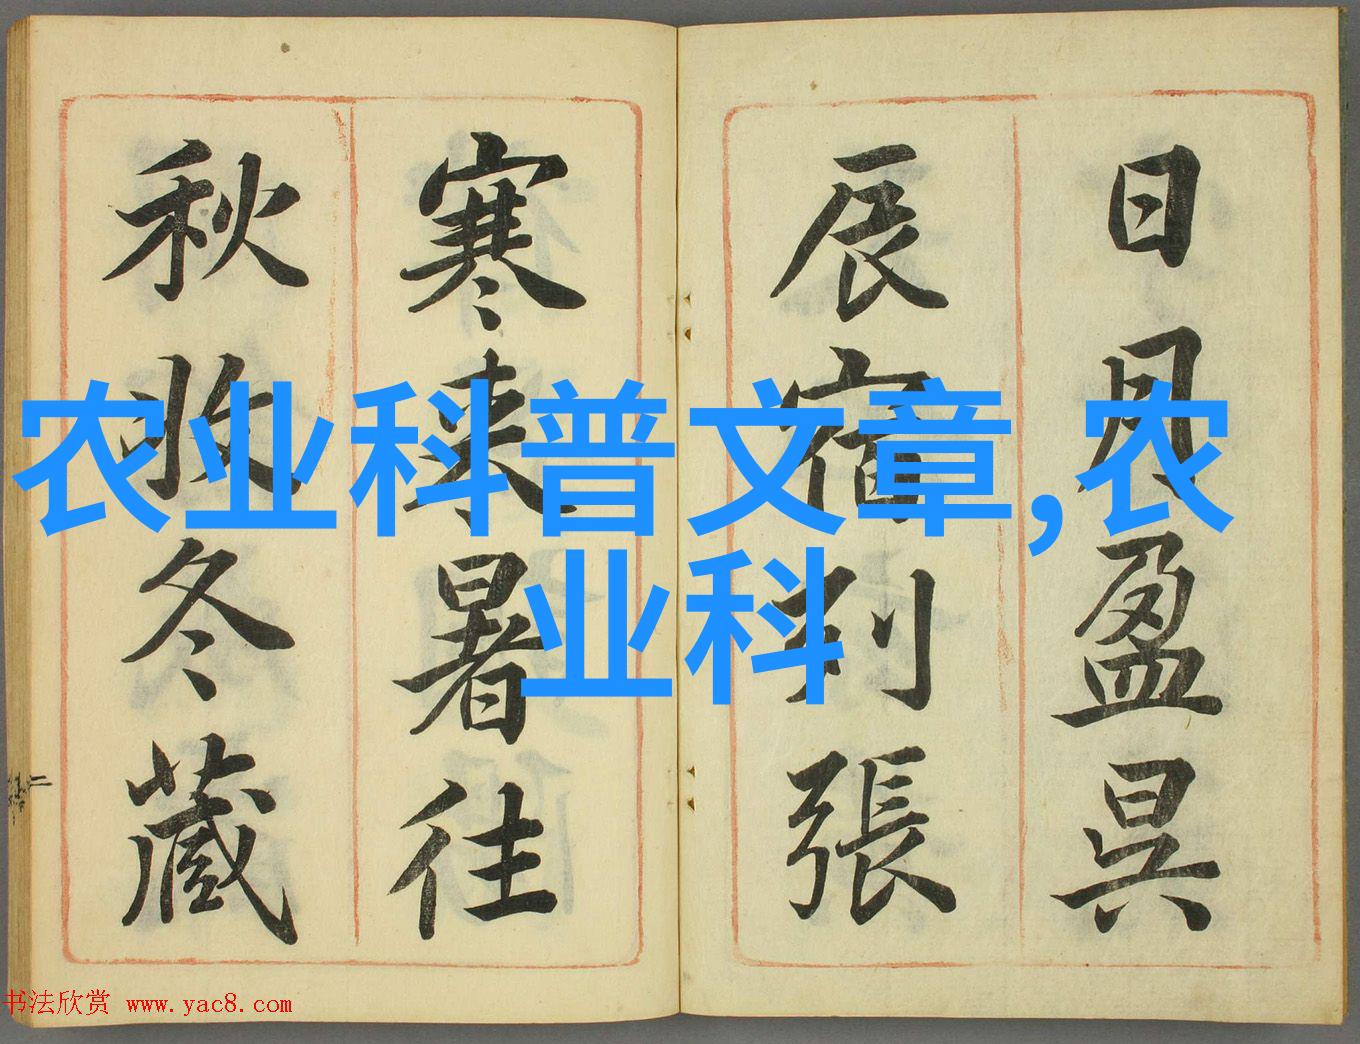 日月盈昃
辰宿列張
寒来暑往
秋收冬藏
农业科普文章,农
业科
二
书法欣赏 www.yac8.com